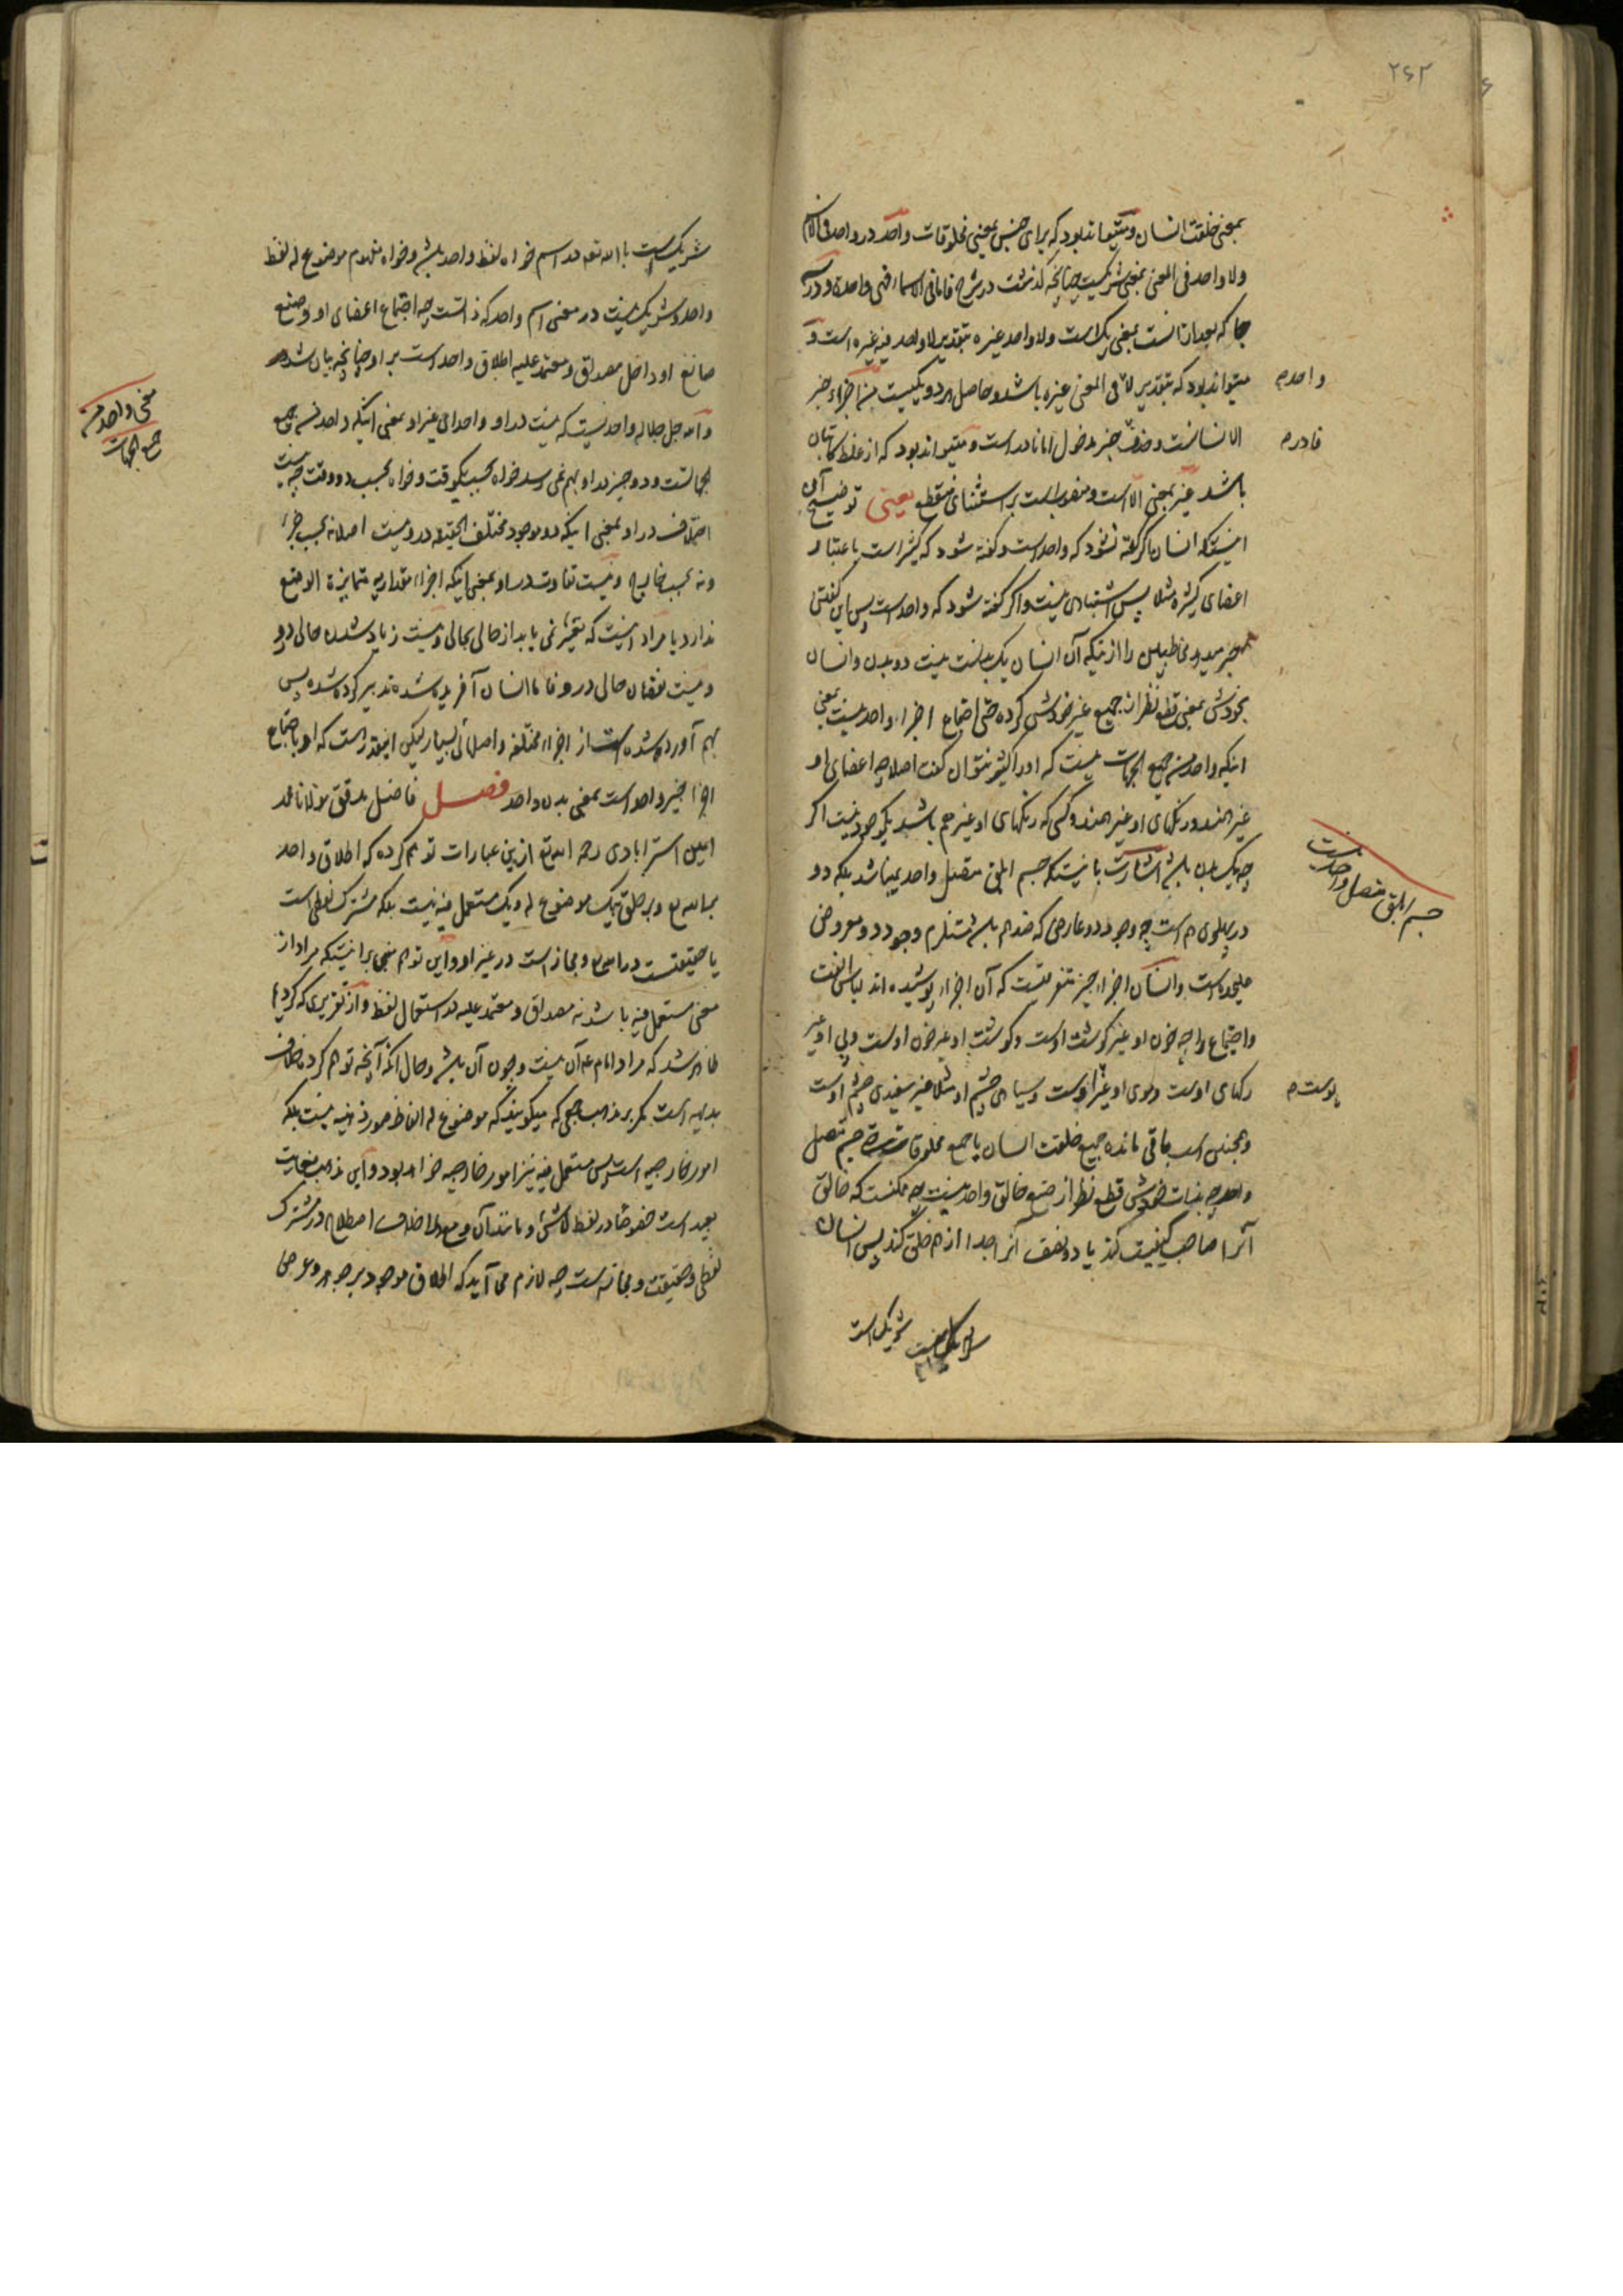 ۲۶۲
بمعنی خلقت انسان و میتواند بود که برای جنس بمعنی مخلوقات واحد در واحد فی الاسم
ولا واحد فی المعنی بمعنی شریکست چنانچه گذشت در شرح فاما فی الاسماء فهی واحدة و در
جا که بعد ازانست بمعنی یک است ولا واحد غیره بتقدیر لا واحد فیه غیره است و
میتواند بود که بتقدیر لا فی المعنی غیره باشد و حاصل هر دو یکیست من اجزاء خبر
واحد م
الانسانست و حذف خبر مدخول اما نادر است و میتواند بود که از غلط کاتبان
نادر م
باشد غیر بمعنی الا است و منصوبست بر استثنای منقطع یعنی توضیح آن
اینستکه انسان اگر گفته نشود که واحد است و گفته شود که کثیر است باعتبار
اعضای کثیره مثلا پس اشتباهی نیست و اگر گفته شود که واحد است پس این گفتن
خبر میدهد مخاطبین را از اینکه آن انسان یک بدنست نیست دو بدن و انسان
بخودش بمعنی قطع نظر از جمیع غیر خودش کرده حتی اجتماع اجزاء واحد نیست بمعنی
اینکه واحد من جمیع الجهات نیست که او را کثیر نتوان گفت اصلا چه اعضای او
غیر همند و رنگهای او غیر همند و کسی که رنگهای او غیر هم باشد یک موجود نیست اگر
چه یک بدن باشد اشارت باینستکه جسم ابلق متصل واحد نمیباشد بلکه دو
جسم ابلق متصل واحد نیست
در پهلوی هم است چه وجود دو عارض که ضد هم باشد مستلزم وجود دو معروض
علیحده است و انسان اجزاء چیز متفرقست که آن اجزاء پوشیده اند لباس الفت
و اجتماع را چه خون او غیر گوشت اوست و گوشت او غیر خون اوست و پی او غیر
رگهای اوست و موی او غیر اوست و سیاهی چشم او مثلا غیر سفیدی چشم اوست
پوست م
و همچنین است باقی مانده جمیع خلقت انسان یا جمیع مخلوقات جسم متصل
واحد چه بذات خودش قطع نظر از صنع خالق واحد نیست چه ممکنست که خالق
آنرا صاحب کیفیت کند یا دو نصف آنرا جدا از هم خلق کند پس انسان
شریک است
شریکست با الله تعالی در اسم خواه لفظ واحد باشد و خواه مفهوم موضوع له لفظ
واحد و شریک نیست در معنی اسم واحد که ذاتست چه اجتماع اعضای او و صنع
صانع او داخل مصداق و معتمد علیه اطلاق واحد است بر او چنانچه بیان شد
و الله جل جلاله واحدیست که نیست در او واحدی غیر او بمعنی اینکه واحد من جمیع
معنی واحد من
جمیع الجهات
الجهاتست و دو چیز در او بهم نمی رسد خواه بحسب یکوقت و خواه بحسب دو وقت چه نیست
اختلاف در او بمعنی اینکه دو موجود مختلف الحقیقه در او نیست اصلا نه بحسب جزء
و نه بحسب خارج و نیست تفاوت در او بمعنی اینکه اجزاء مقداریه متمایزة الوضع
ندارد یا مراد اینست که تغیر نمی یابد از حالی بحالی و نیست زیاد شدن حالی در او
و نیست نقصان حالی در او فاما انسان آفریده شده تدبیر کرده شده پس
بهم آورده شده است از اجزاء مختلفه و اصلهای بسیار لیکن اینقدر است که او باجتماع
اجزا چیز واحد است بمعنی بدن واحد فصل فاضل مدقق مولانا محمد
امین استرابادی رحمه الله تعالی ازین عبارات توهم کرده که اطلاق واحد
بر الله تعالی و بر خلق بیک موضوع له و یک مستعمل فیه نیست بلکه مشترک لفظی است
یا حقیقتست در الله تعالی و مجاز است در غیر او و این توهم مبنی بر اینستکه مراد از
معنی مستعمل فیه باشد نه مصداق و معتمد علیه در استعمال لفظ و از تقریری که کردیم
ظاهر شد که مراد امام ع آن نیست و چون آن باشد و حال آنکه آنچه توهم کرده خلاف
بدیهه است مگر بر مذهب جمعی که میگویند که موضوع له الفاظ صور ذهنیه نیست بلکه
امور خارجیه است پس مستعمل فیه نیز امور خارجیه خواهد بود و این مذهب بغایت
بعید است خصوصا در لفظ لاشئ و مانند آن و مع هذا خلاف اصطلاح در مشترک
لفظی و حقیقت و مجاز است چه لازم می آید که اطلاق موجود بر جوهر و عرض